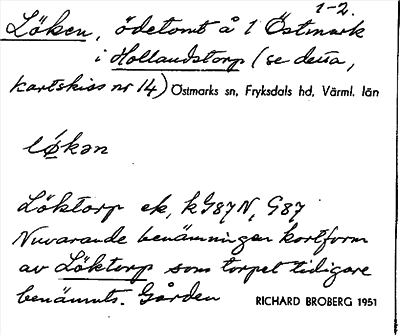 1-2.
Löken, ödetomt å 1 Östmark
i Hollandstorp (se detta,
kartskiss nr 14) Östmarks sn, Fryksdals hd, Värml. län
løkən
Löktorp ek, kG87N, G87
Nuvarande benämningen kortform
av Löktorp som torpet tidigare
benämnts. Gården
RICHARD BROBERG 1951